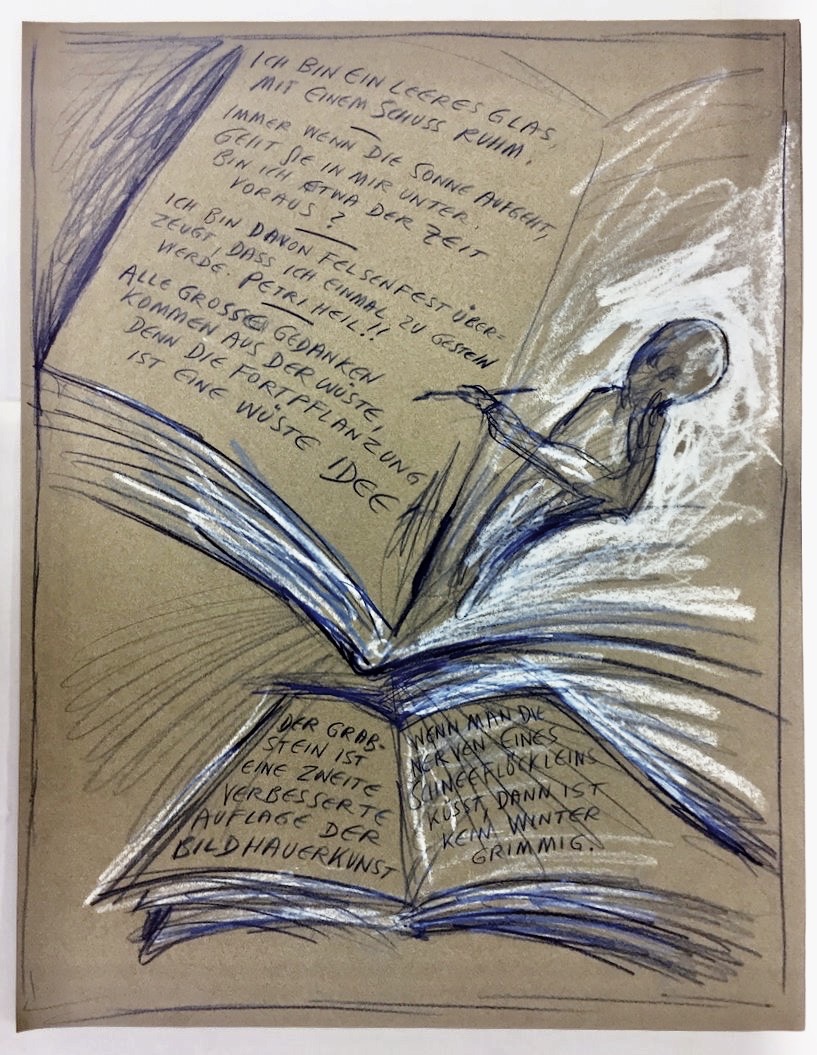 ICH BIN EIN LEERES GLAS,
MIT EINEM SCHUSS RUHM.
IMMER WENN DIE SONNE AUFGEHT,
GEHT SIE IN MIR UNTER.
BIN ICH ETWA DER ZEIT
VORAUS?
ICH BIN DAVON FELSENFEST ÜBER-
ZEUGT, DASS ICH EINMAL ZU GESTEIN
WERDE. PETRI HEIL!!
ALLE GROSSE GEDANKEN
KOMMEN AUS DER WÜSTE,
DENN DIE FORTPFLANZUNG
IST EINE WÜSTE IDEE
DER GRAB-
STEIN IST
EINE ZWEITE
VERBESSERTE
AUFLAGE DER
BILDHAUERKUNST
WENN MAN DIE
NERVEN EINES
SCHNEEFLÖCKLEINS
KÜSST, DANN IST
KEIN WINTER
GRIMMIG.